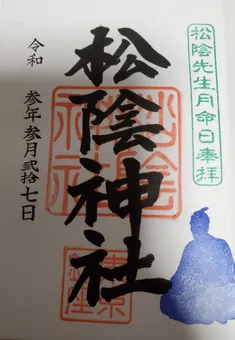 松陰先生月命日奉拝
松陰神社
令和
参年参月弐拾七日
松陰
神社